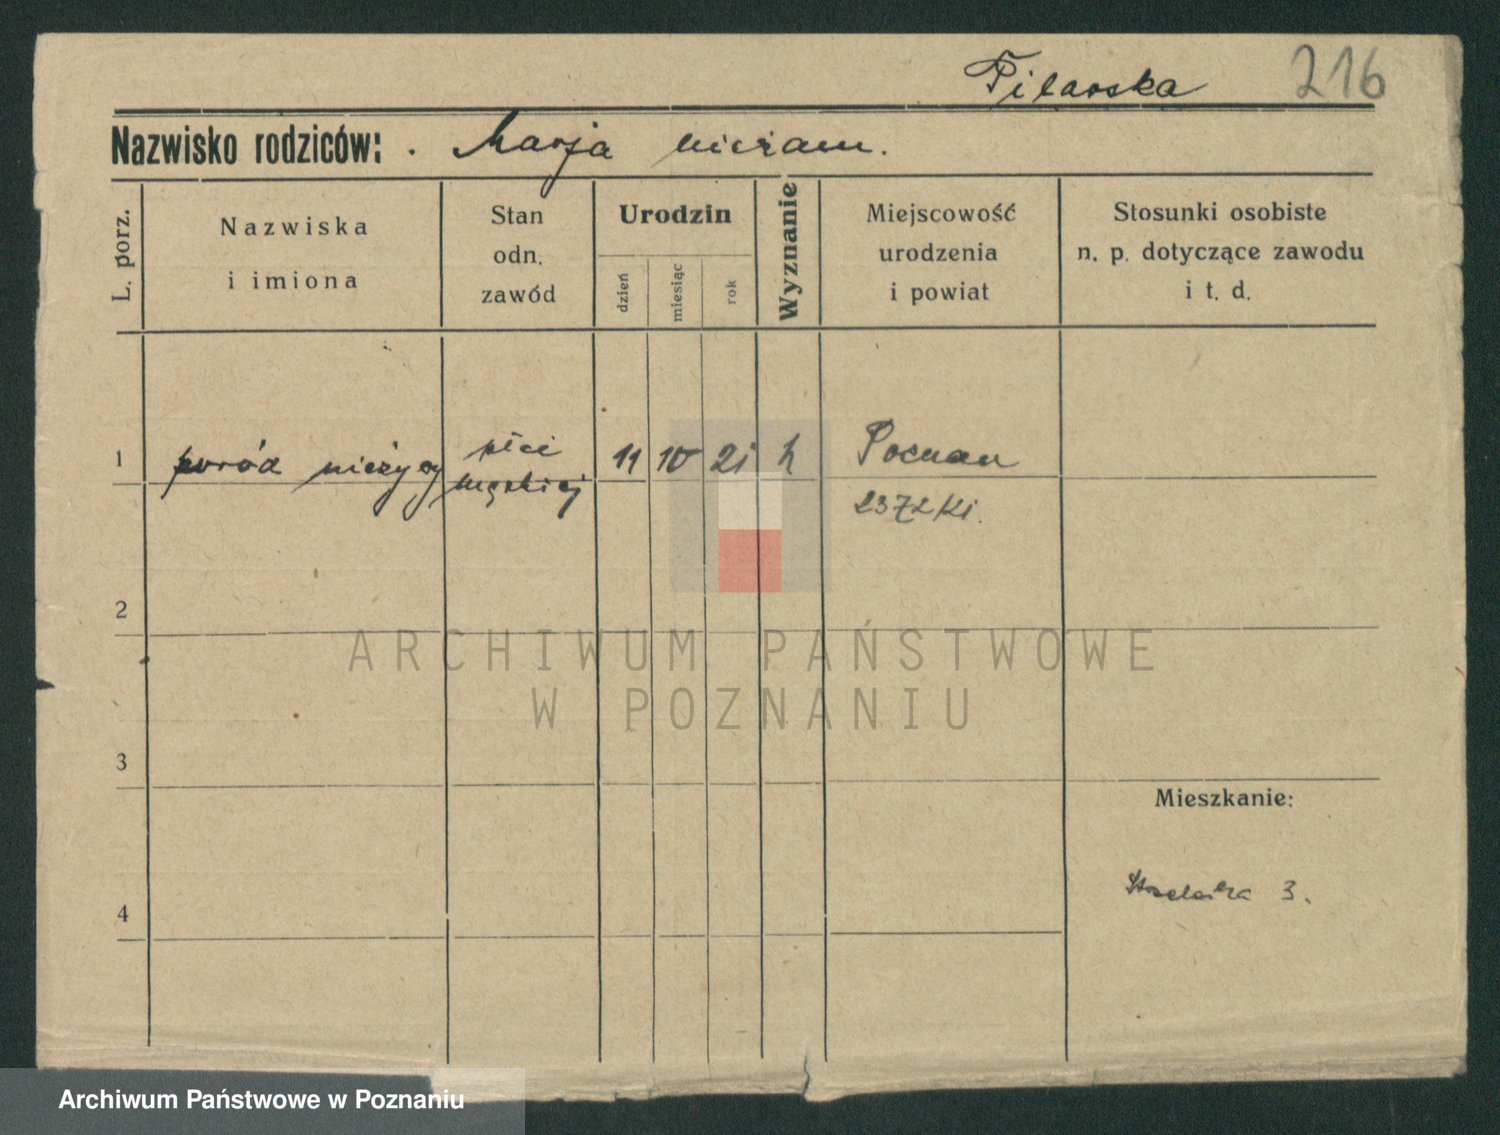 216
Pilarska
Nazwisko rodziców: Marja niezam.
L. porz.
Nazwiska
i imiona
Stan
odn.
zawód
Urodzin
dzień
miesiąc
rok
Wyznanie
Miejscowość
urodzenia
i powiat
Stosunki osobiste
n. p. dotyczące zawodu
i t. d.
1 poród nieżywy płci 11 10 21 k Poznań
męskiej
2
3
4
Mieszkanie:
3.
ARCHIWUM PAŃSTWOWE
W POZNANIU
Archiwum Państwowe w Poznaniu